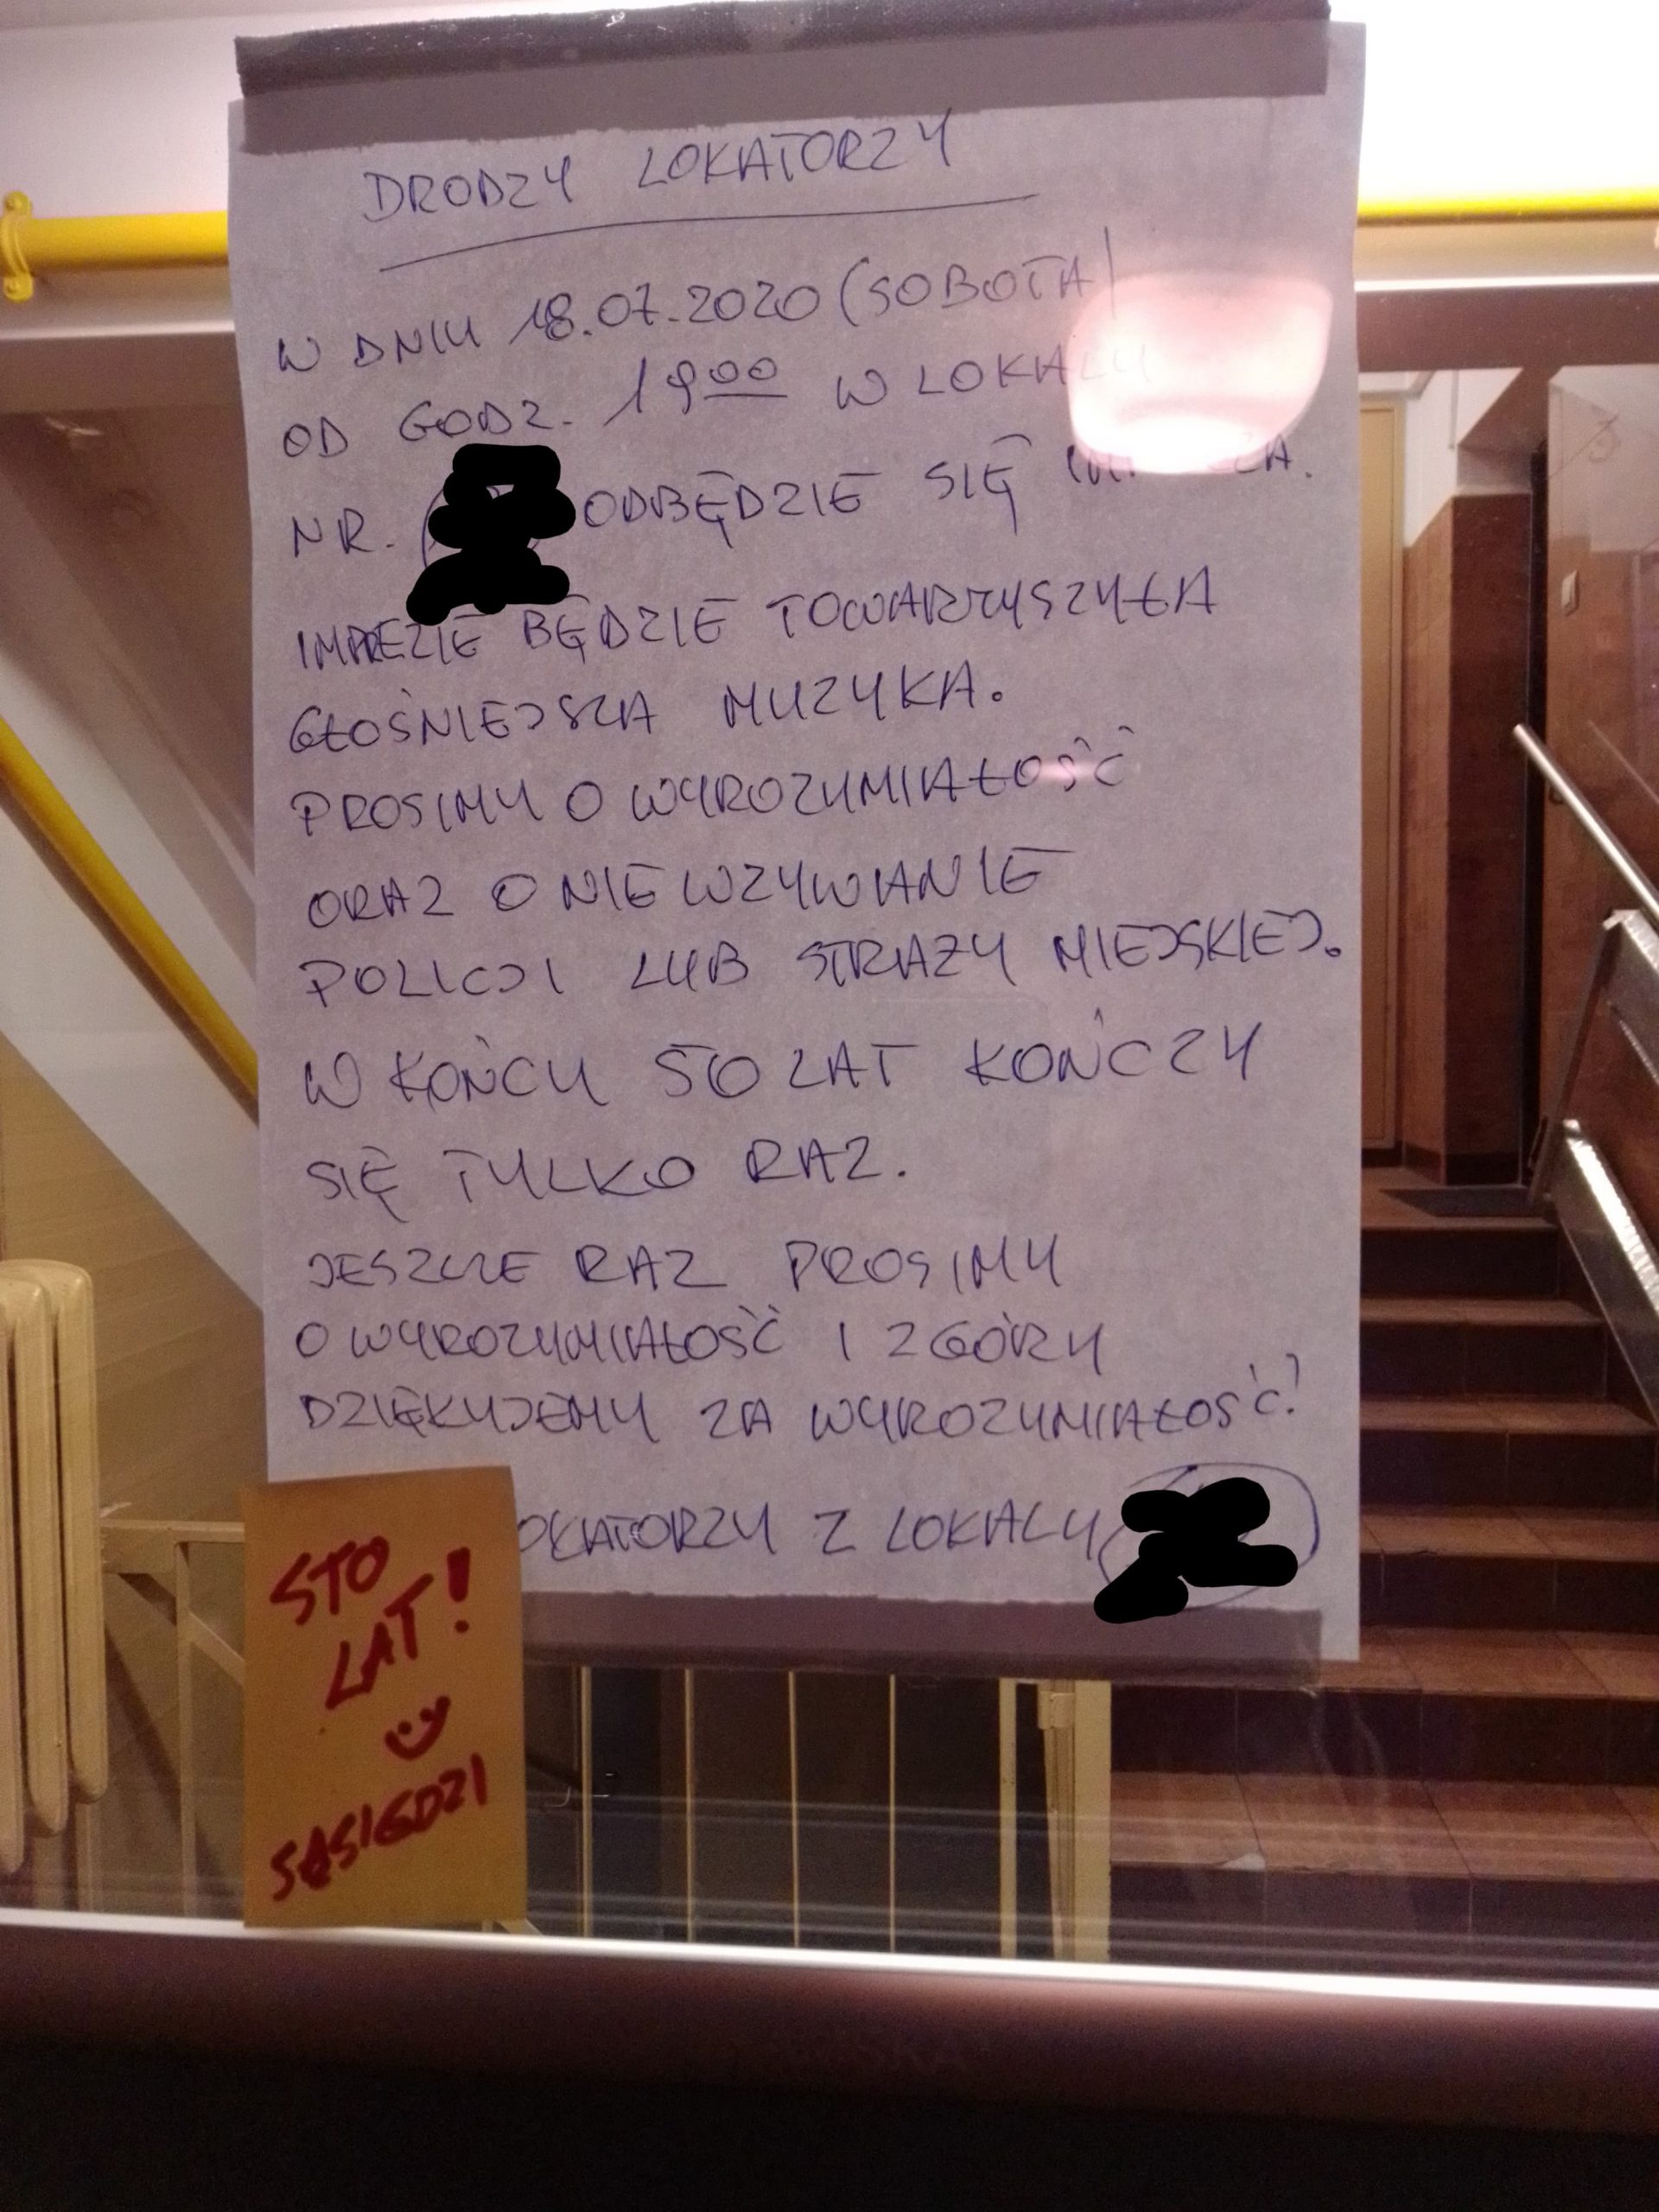 DRODZY LOKATORZY
W DNIU 18.07.2020 (SOBOTA)
OD GODZ. 19 00 W LOKALU
NR. ODBĘDZIE SIĘ
IMPREZIE BĘDZIE TOWARZYSZYŁA
GŁOŚNIEJSZA MUZYKA.
PROSIMY O WYROZUMIAŁOŚĆ
ORAZ O NIE WZYWANIE
POLICJI LUB STRAZY MIEJSKIEJ.
W KOŃCU 50 LAT KOŃCZY
SIĘ TYLKO RAZ.
JESZCZE RAZ PROSIMY
O WYROZUMIAŁOŚĆ I Z GÓRY
DZIĘKUJEMY ZA WYROZUMIAŁOŚĆ!
OKATORZY Z LOKALU
STO
LAT!
SĄSIEDZI